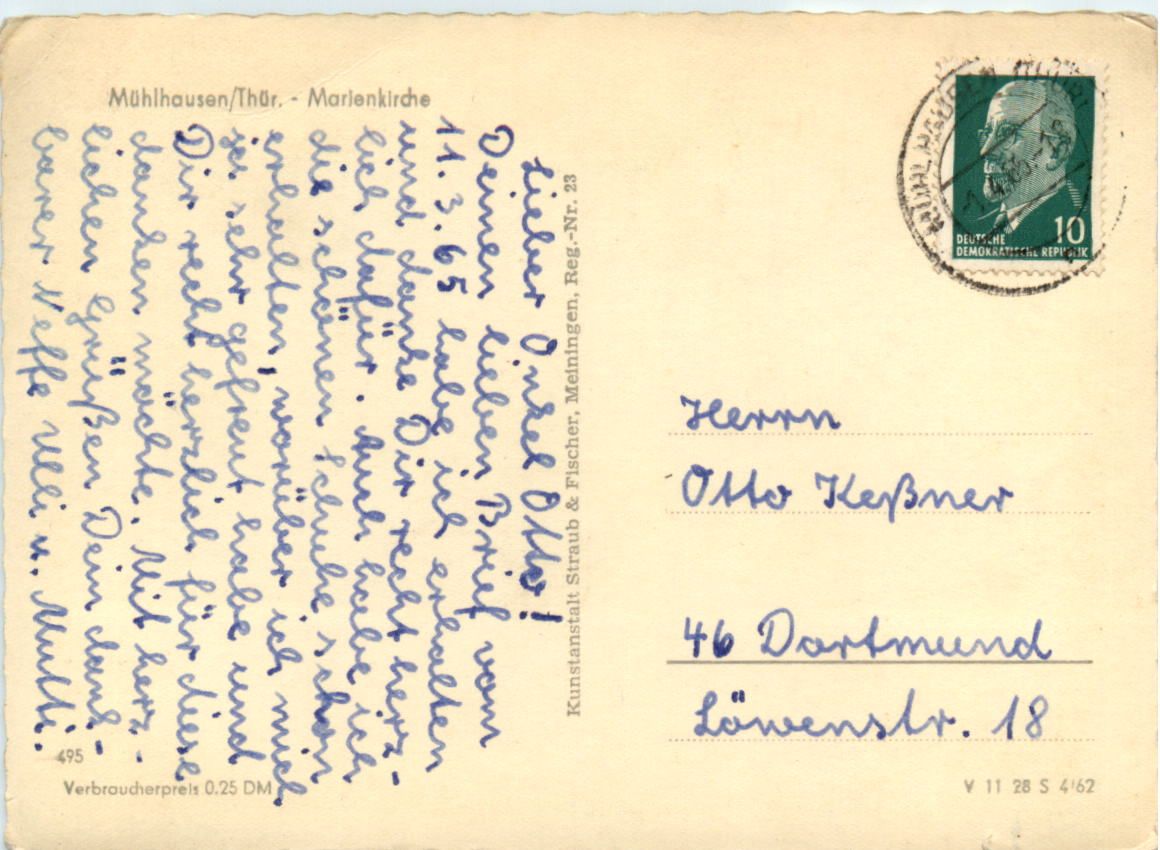 Mühlhausen/Thür. - Marienkirche
Lieber Onkel Otto!
Deinen lieben Brief vom
11.3.65 habe ich erhalten
und danke Dir recht herz-
lich dafür. Auch habe ich
die schönen Schuhe schon
erhalten, worüber ich mich
ja sehr gefreut habe und
Dir recht herzlich für diese
danken möchte. Mit herz-
lichen Grüßen Dein dank-
barer Neffe Ulli u. Mutti.
495
Verbraucherpreis 0.25 DM
Kunstanstalt Straub & Fischer, Meiningen, Reg.-Nr. 23
MÜHLHAUSEN
DEUTSCHE
DEMOKRATISCHE REPUBLIK
10
Herrn
Otto Keßner
46 Dortmund
Löwenstr. 18
V 11 28 S 4/62